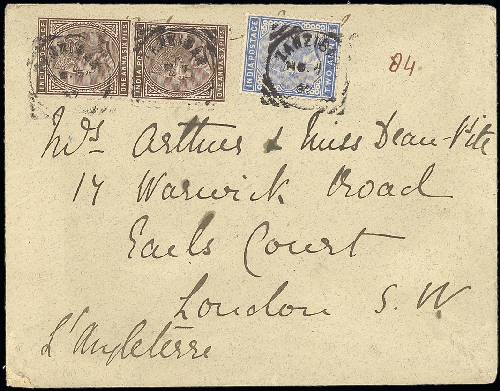 INDIA POSTAGE ONE ANNA SIX PIES
INDIA POSTAGE ONE ANNA SIX PIES
INDIA POSTAGE TWO ANNAS
ZANZIBAR
ZANZIBAR
ZANZIBAR
84
Mrs Arthur & Miss Dean-Pite
17 Warwick Road
Earls Court
London S.W
L'Angleterre